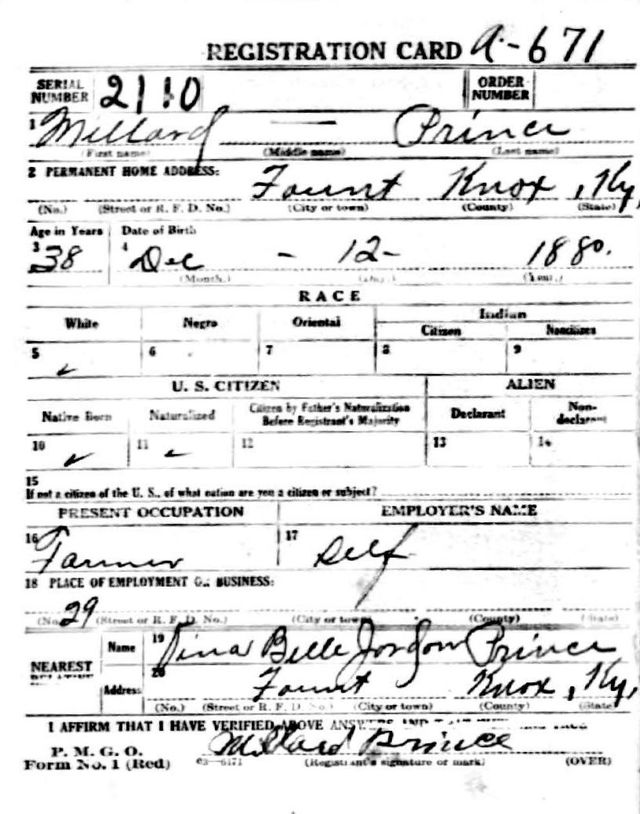 REGISTRATION CARD A-671
SERIAL NUMBER 2110 ORDER NUMBER
1 Millard — Prince
(First name) (Middle name) (Last name)
2 PERMANENT HOME ADDRESS: Fount Knox, Ky,
(No.) (Street or R. F. D. No.) (City or town) (County) (State)
Age in Years Date of Birth
3 38 4 Dec - 12 - 1880.
(Month.) (Day.) (Year.)
RACE
White Negro Oriental Indian
Citizen Noncitizen
5 ✓ 6 7 8 9
U. S. CITIZEN ALIEN
Native Born Naturalized Citizen by Father's Naturalization Before Registrant's Majority Declarant Non-declarant
10 ✓ 11 ✓ 12 13 14
15
If not a citizen of the U. S., of what nation are you a citizen or subject?
PRESENT OCCUPATION EMPLOYER'S NAME
16 Farmer 17 Self
18 PLACE OF EMPLOYMENT OR BUSINESS:
29
(No.) (Street or R. F. D. No.) (City or town) (County) (State)
NEAREST RELATIVE Name 19 Belle Jordon Prince
Address 20 Fount Knox, Ky,
(No.) (Street or R. F. D. No.) (City or town) (County) (State)
I AFFIRM THAT I HAVE VERIFIED ABOVE ANSWERS AND THAT THEY ARE TRUE
P. M. G. O.
Form No. 1 (Red) 03—6171 Millard Prince
(Registrant's signature or mark) (OVER)